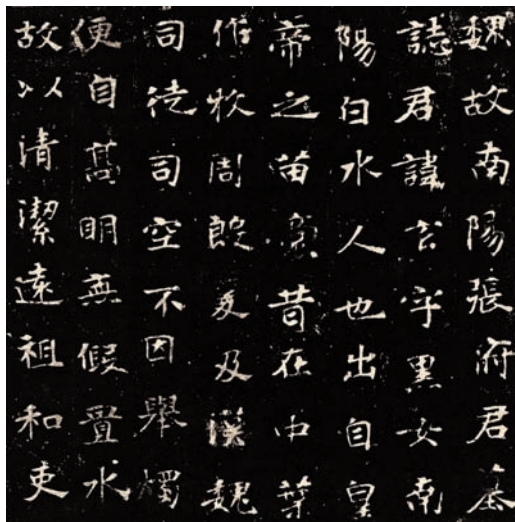 魏故南陽張府君墓
誌君諱玄字黑女南
陽白水人也出自皇
帝之苗裔昔在中葉
作牧周殷爰及漢魏
司徒司空不因舉燭
便自高明無假置水
故以清潔遠祖和吏